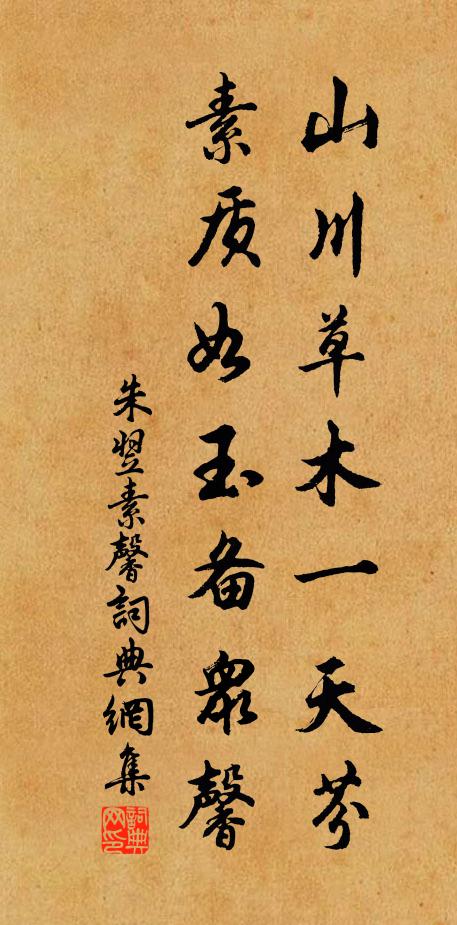 山川草木一天芬
素质如玉备众馨
朱翌素馨詞典網集
詞典网印